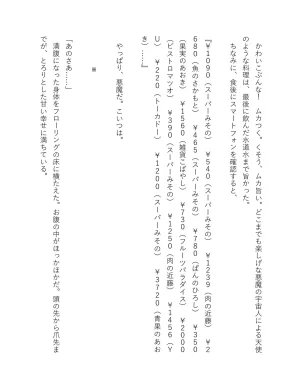 かわいこぶんな！　ムカつく。くそう、ムカ旨い。どこまでも楽しげな悪魔の宇宙人による天使
のような料理は、最後に飲んだ水道水まで旨かった。
ちなみに、食後にスマートフォンを確認すると、
『￥1090（スーパーみその）　￥540（スーパーみその）　￥1239（肉の近藤）　￥2
680（魚のさかもと）　￥465（スーパーみその）　￥780（ぱんのひろし）　￥350
（果実のあおき）　￥1560（雑貨こばやし）　￥730（フルーツパラダイス）　￥2000
（ビストロマツオ）　￥390（スーパーみその）　￥1250（肉の近藤）　￥1456（Y
U）　￥220（トーカドー）　￥1200（スーパーみその）　￥3720（青果のあお
き）……』
やっぱり、悪魔だ。こいつは。
※
「あのさあ……」
満腹になった身体をフローリングの床に横たえた。お腹の中がほっかほかだ。頭の先から爪先ま
でが、とろりとした甘い幸せに満ちている。